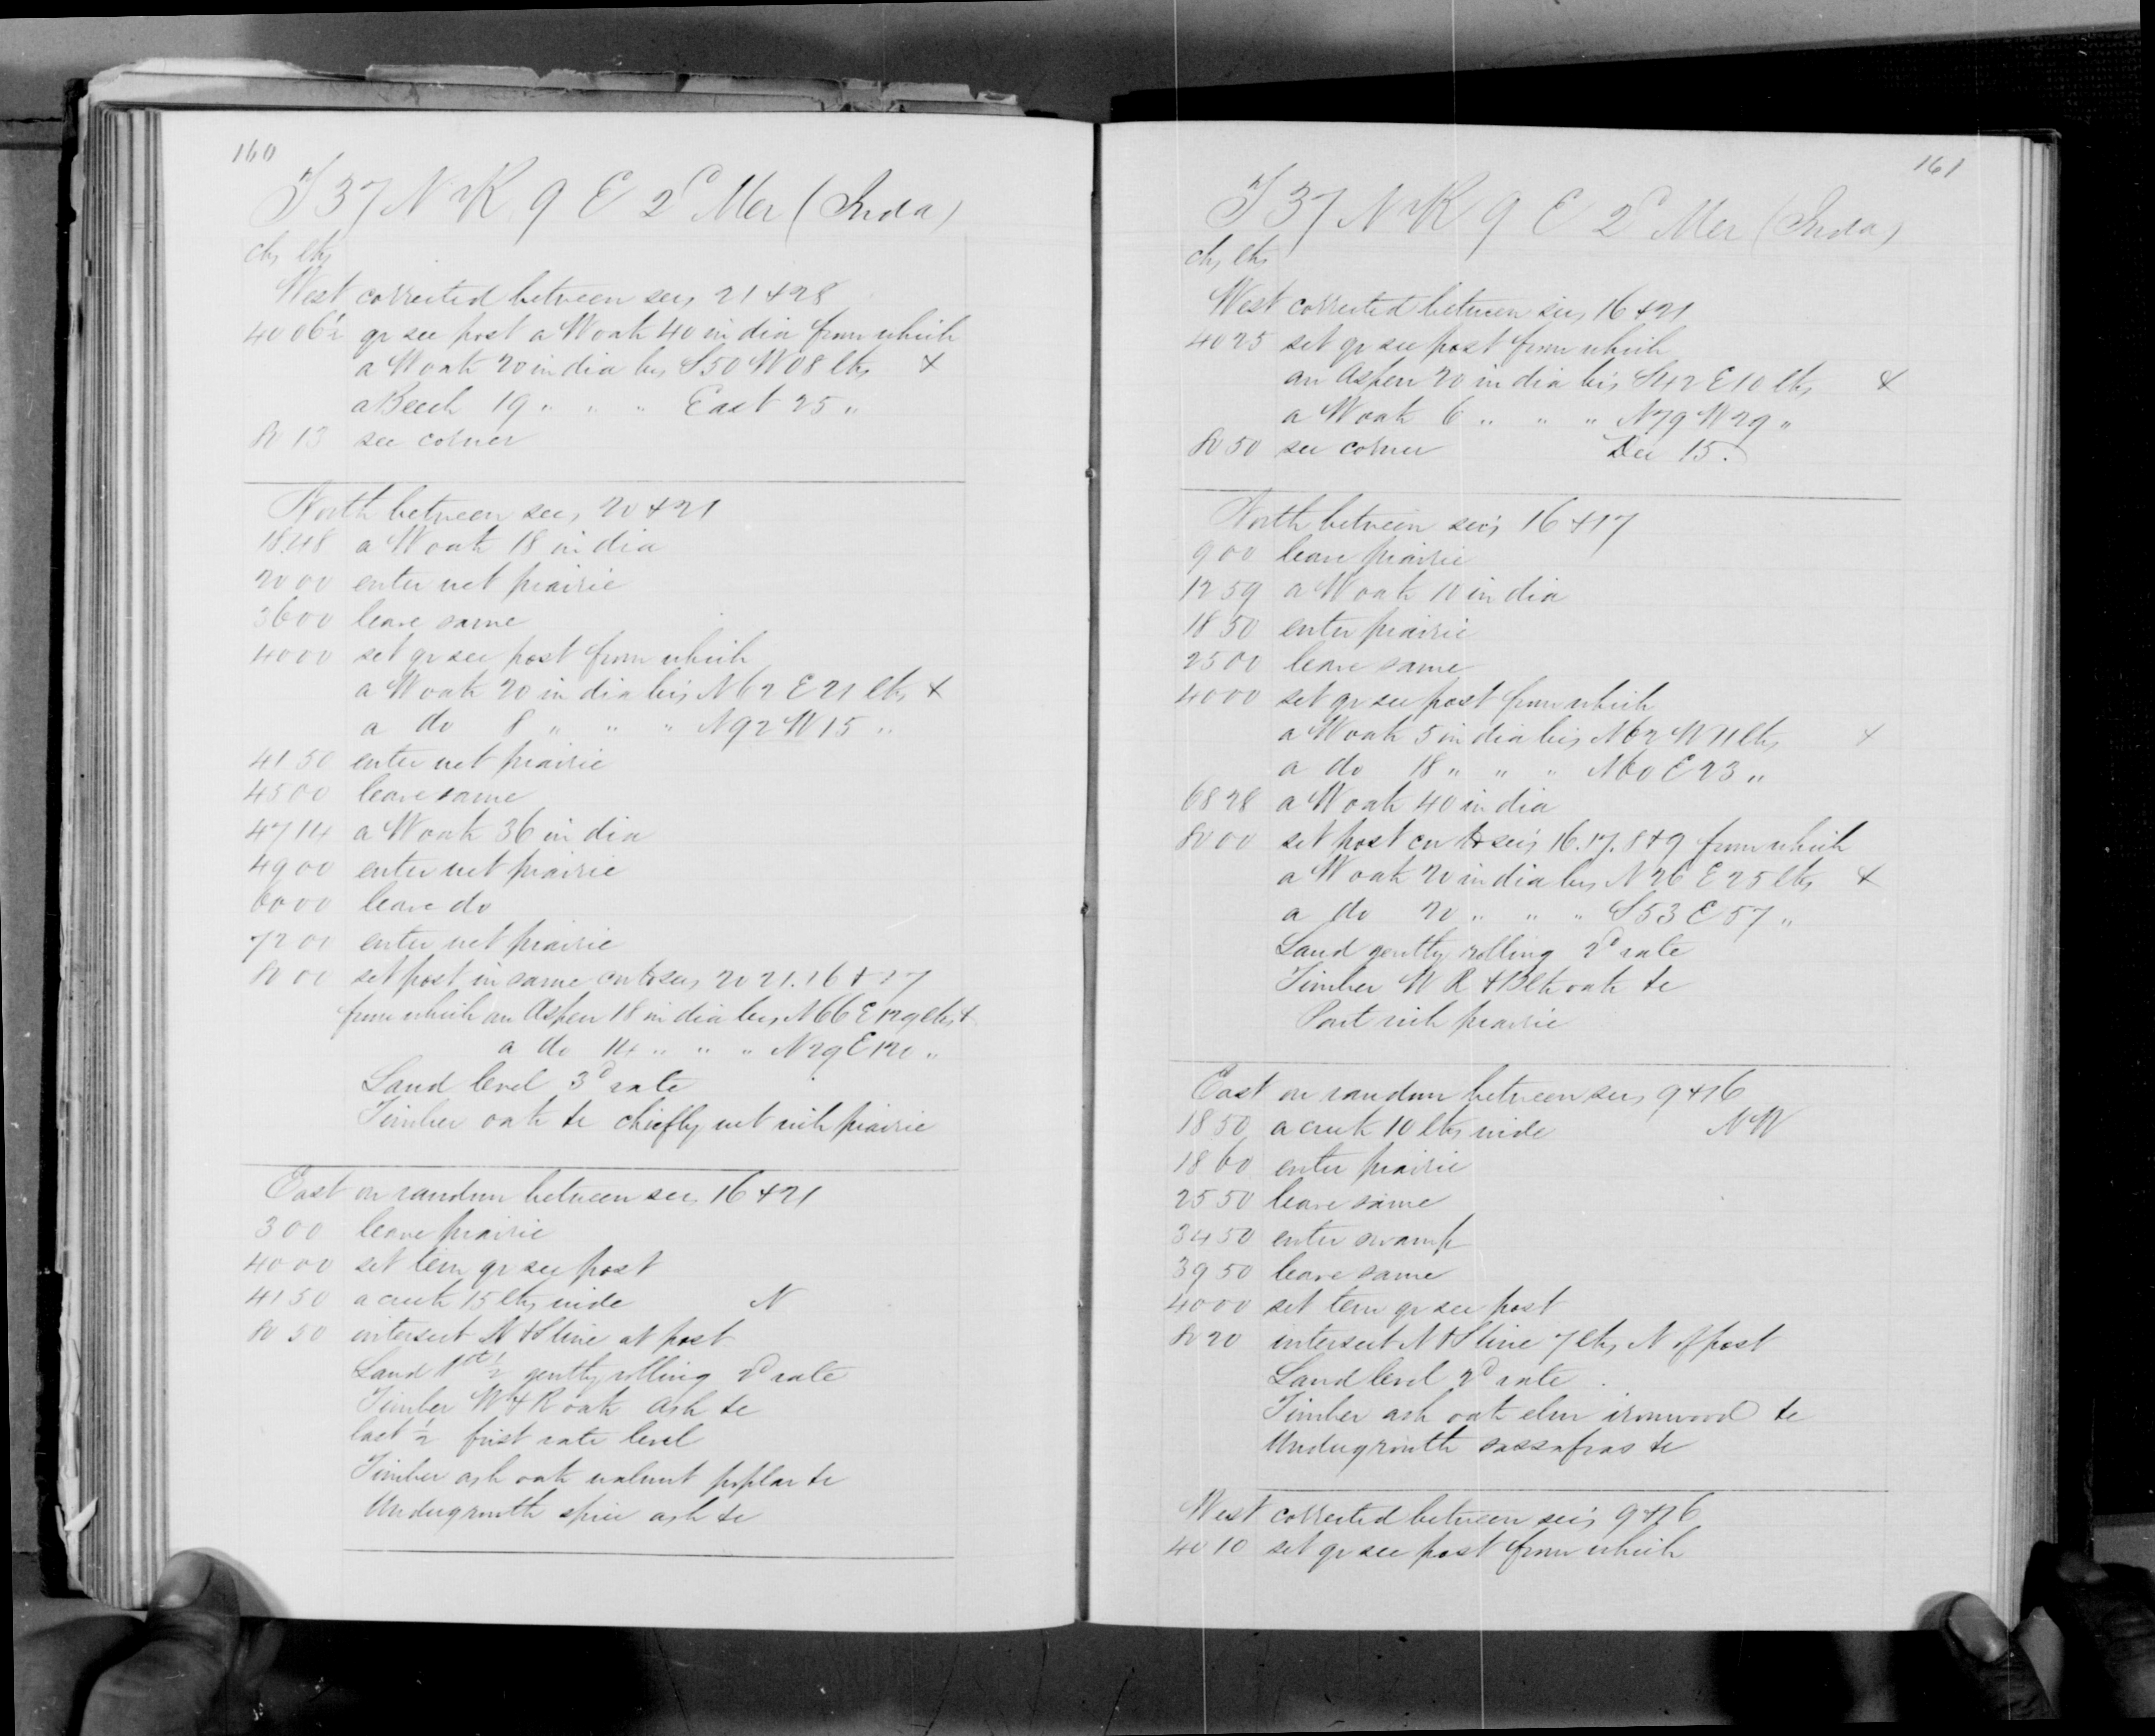 160
T 37 N R 9 E 2d Mer (Inda)
chs lks
West corrected between secs 21 & 28
40 06½ qr sec post a W oak 40 in dia from which
a W oak 20 in dia brs S50 W08 lks &
a Beech 19 " " " East 25 "
80 13 sec corner
North between secs 20 & 21
18.48 a W oak 18 in dia
20 00 enter wet prairie
36 00 leave same
40 00 set qr sec post from which
a W oak 20 in dia brs N62 E21 lks &
a do 8 " " " N92 W15 "
41 50 enter wet prairie
45 00 leave same
47 14 a W oak 36 in dia
49 00 enter wet prairie
60 00 leave do
72 00 enter wet prairie
80 00 set post in same cor to secs 20 21. 16 & 17
from which an Aspen 18 in dia brs N66 E129 lks &
a do 14 " " " N29 E120 "
Land level 3d rate
Timber oak &c chiefly wet rich prairie
East on random between secs 16 & 21
3 00 leave prairie
40 00 set tem qr sec post
41 50 a creek 15 lks wide N
80 50 intersect N & S line at post
Land 1st ½ gently rolling 2d rate
Timber W & R oak ash &c
last ½ first rate level
Timber ash oak walnut poplar &c
Undergrowth spice ash &c
161
T 37 N R 9 E 2d Mer (Inda)
chs lks
West corrected between secs 16 & 21
40 25 set qr sec post from which
an Aspen 20 in dia brs S42 E10 lks &
a W oak 6 " " " N79 W29 "
80 50 sec corner Dec 15.
North between sec's 16 & 17
9 00 leave prairie
12 59 a W oak 10 in dia
18 50 enter prairie
25 00 leave same
40 00 set qr sec post from which
a W oak 5 in dia brs N62 W11 lks &
a do 18 " " " N60 E23 "
68 28 a W oak 40 in dia
80 00 set post cor to sec's 16. 17. 8 & 9 from which
a W oak 20 in dia brs N26 E25 lks &
a do 20 " " " S53 E57 "
Land gently rolling 2d rate
Timber W R & Blk oak &c
Part rich prairie
East on random between secs 9 & 16
18 50 a creek 10 lks wide NW
18 60 enter prairie
25 50 leave same
34 50 enter swamp
39 50 leave same
40 00 set tem qr sec post
80 20 intersect N & S line 7 lks N of post
Land level 2d rate
Timber ash oak elm ironwood &c
Undergrowth sassafras &c
West corrected between sec's 9 & 16
40 10 set qr sec post from which